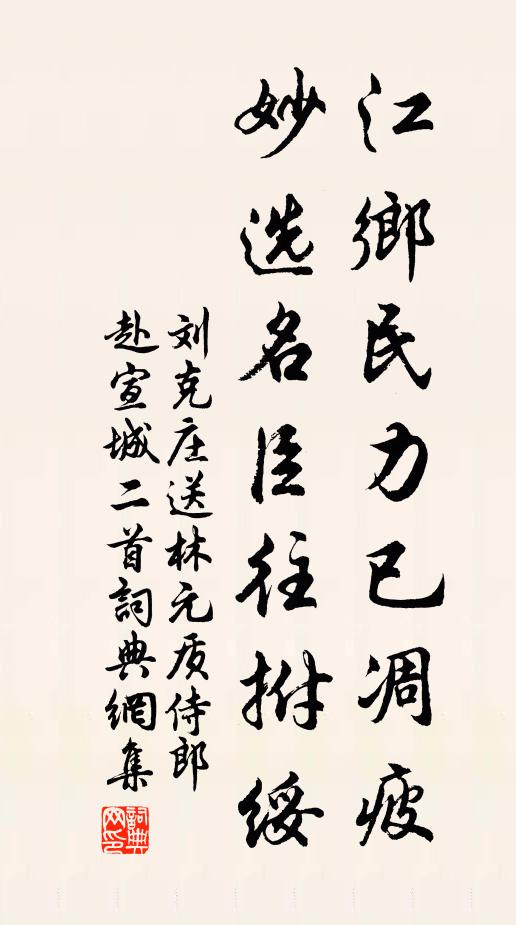 江鄉民力已凋疲
妙选名臣往拊綏
刘克庄送林元质侍郎
赴宣城二首詞典網集
詞典網印